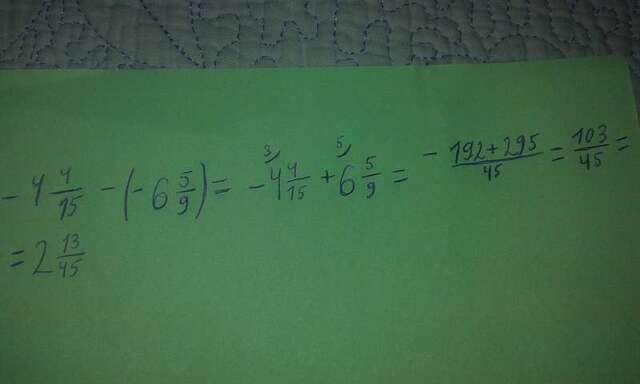 - 4 4/15 - (- 6 5/9) = - 4 4/15 + 6 5/9 = - 192 + 295/45 = 103/45 =
= 2 13/45